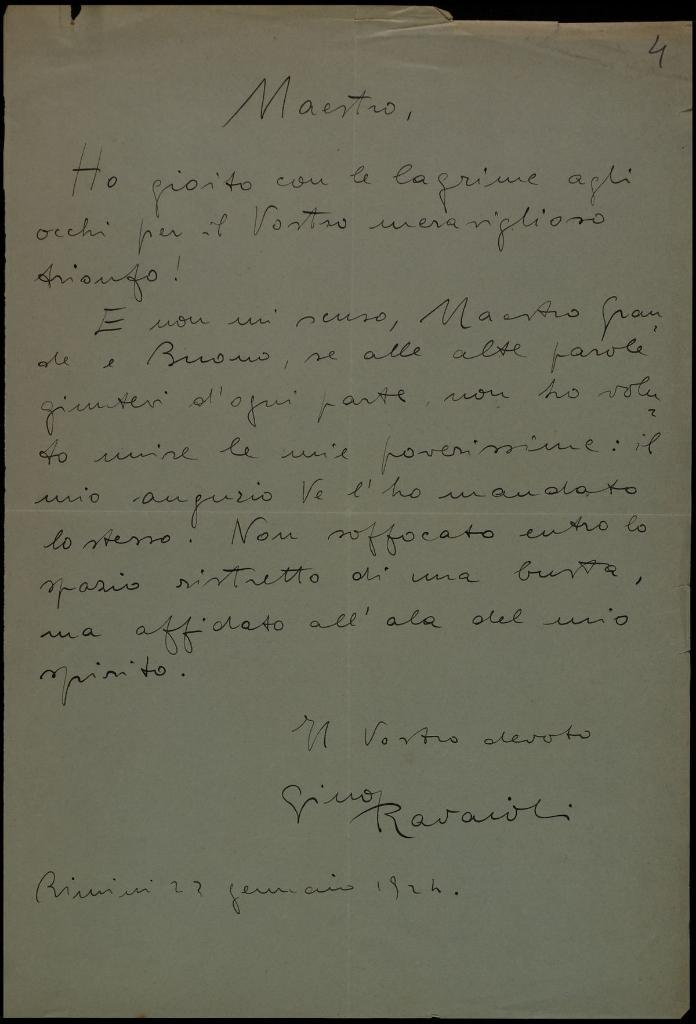 4
Maestro,
Ho gioito con le lagrime agli
occhi per il Vostro meraviglioso
trionfo!
E non mi scuso, Maestro Gran-
de e Buono, se alle alte parole
giuntevi d'ogni parte, non ho volu-
to unire le mie poverissime: il
mio augurio Ve l'ho mandato
lo stesso. Non soffocato entro lo
spazio ristretto di una busta,
ma affidato all'ala del mio
spirito.
Il Vostro devoto
Gino Ravaioli
Rimini 22 gennaio 1924.